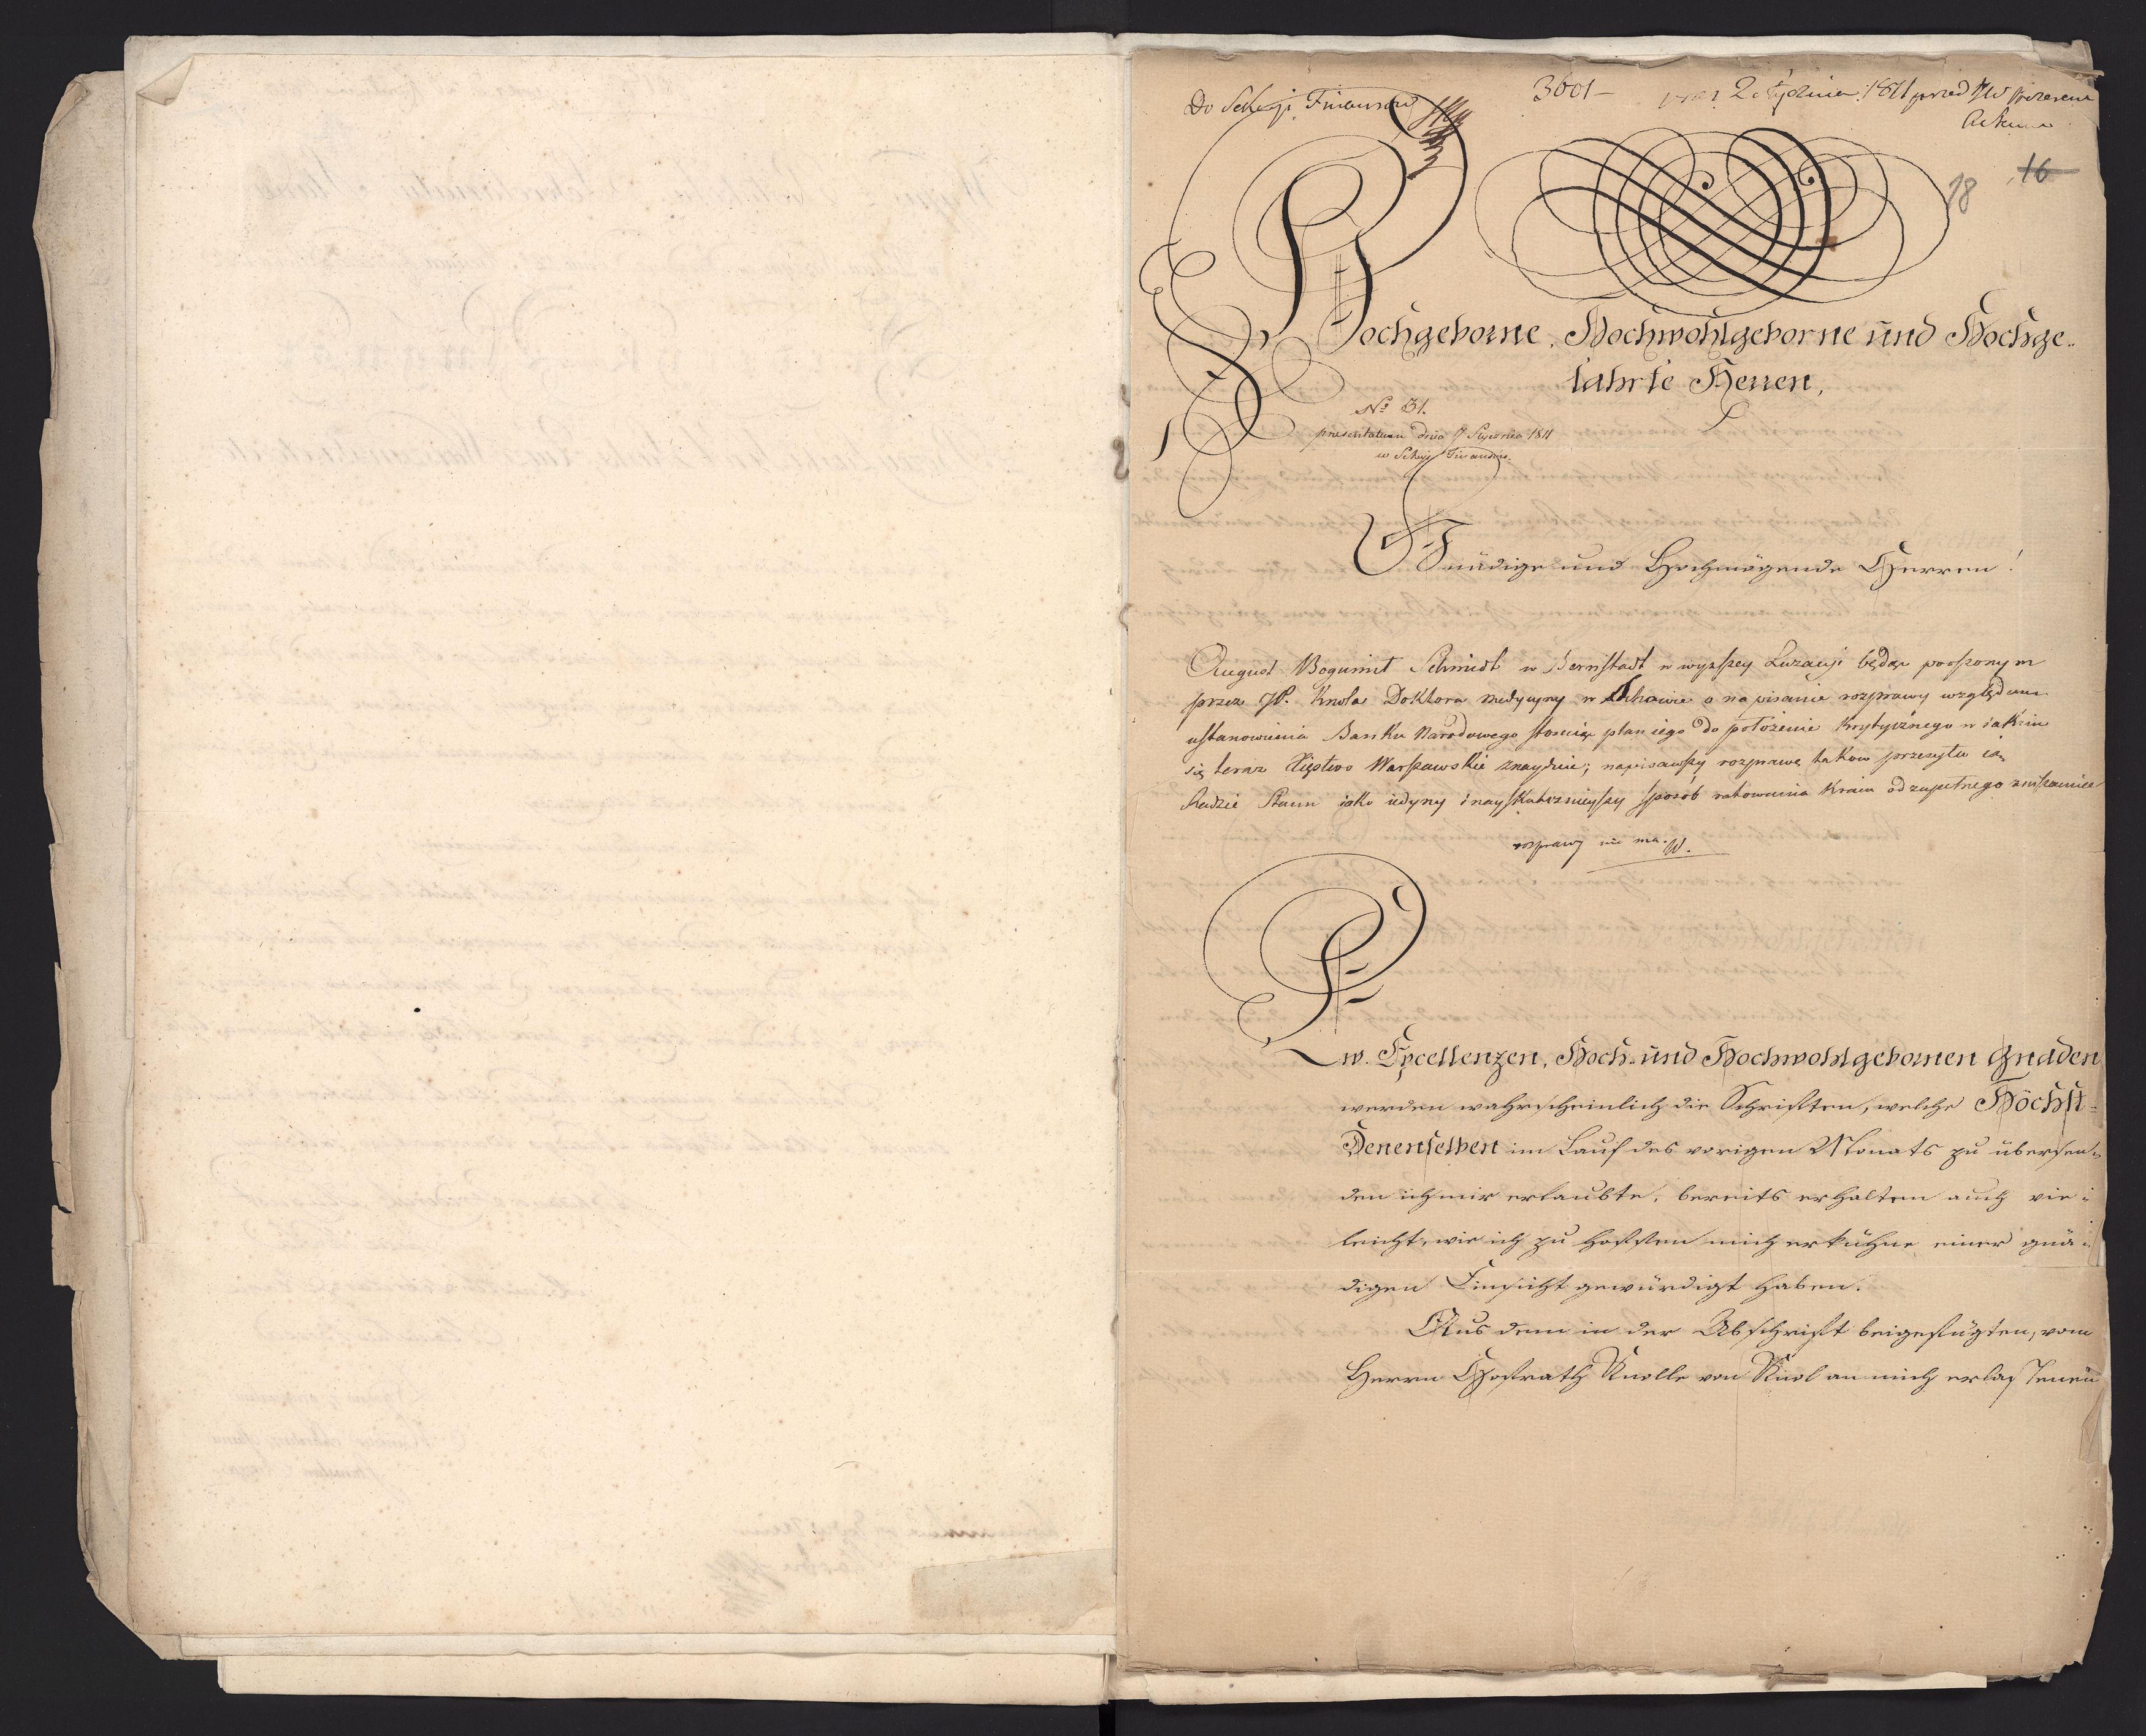 Do Sekcji Finansow
3601 —
2 Stycznia 1811 przed JW Prezesem
18
16
Hochgeborne, Hochwohlgeborne und Hochge-
lahrte Herren,
No 31.
praesentatum dnia 7 Stycznia 1811
w Sekcji Finansow.
Gnädige und Hochmögende Herren!
August Bogumił Schmidt w Bernstadt w wyzszey Luzacyi będąc proszonym
przez JP. Knola Doktora medycyny w o napisanie rozprawy względem
ustanowienia Banku Narodowego stosuiąc plan iego do położenia krytycznego w iakim
się teraz Xięstwo Warszawskie znayduie; napisawszy rozprawę takow przesyła ią
Radzie Stanu iako iedyny i nayskutecznieyszy sposób ratowania Kraiu od zupełnego zniszczenia
rozprawy nie ma. W.
Ew. Excellenzen, Hoch- und Hochwohlgebornen Gnaden
werden wahrscheinlich die Schriften, welche Höchst-
Denenselben im Lauf des vorigen Monats zu übersen-
den ich mir erlaubte, bereits erhalten auch vie-
leicht, wie ich zu hoffen mich erkühne einer gnä-
digen Einsicht gewürdigt haben.
Aus dem in der Abschrift beigefügten, vom
Herrn Hofrath Knolle von Knol an mich erlassenen